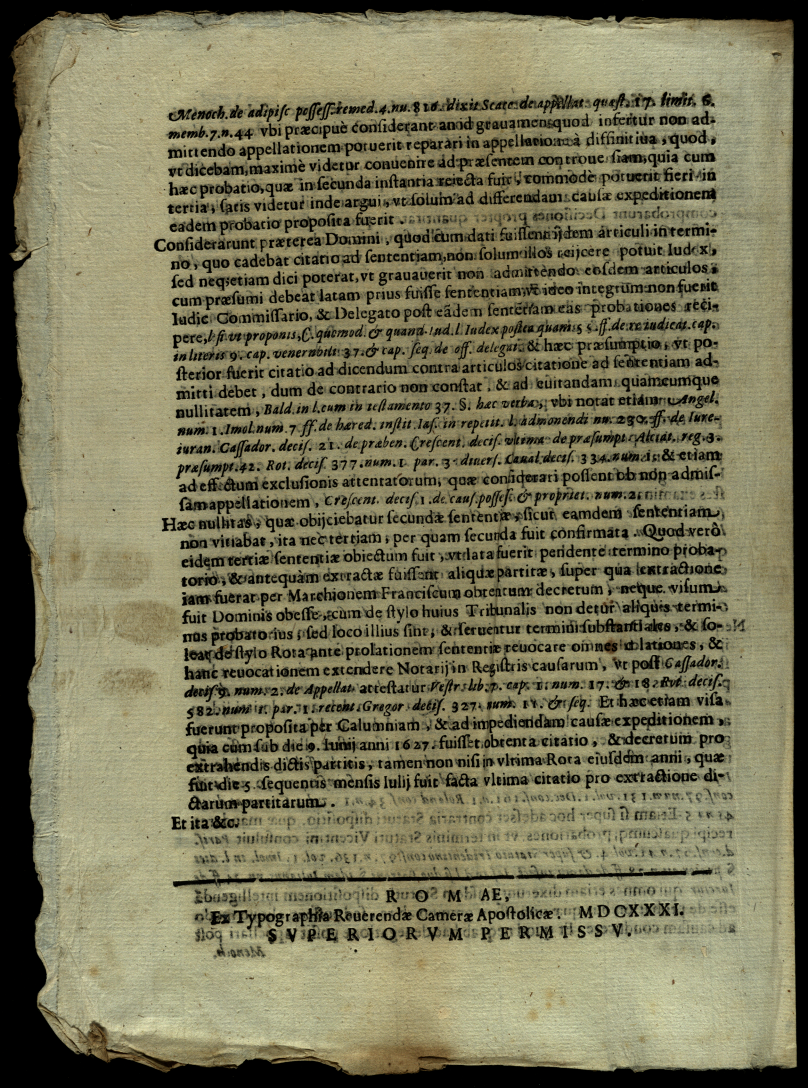 Menoch. de adipisc possess. remed. 4. nu. 816. dixit Scacc. de appellat. quæst. 17. limit. 6.
memb. 7. n. 44 vbi præcipuè considerant an id grauamen quod infertur non ad-
mittendo appellationem potuerit reparari in appellatione à diffinitiua, quod,
vt dicebam, maximè videtur conuenire ad præsentem controuersiam, quia cum
hæc probatio, quæ in secunda instantia reiecta fuit, commodè potuerit fieri in
tertia, satis videtur inde argui, vt solum ad differendam causæ expeditionem
eadem probatio proposita fuerit.
Considerarunt præterea Domini, quod cum dati fuissent ijdem articuli in termi-
no, quo cadebat citatio ad sententiam, non solum illos reijcere potuit Iudex,
sed neq; etiam dici poterat, vt grauauerit non admittendo eosdem articulos,
cum præsumi debeat latam prius fuisse sententiam, vt ideo integrum non fuerit
Iudic. Commissario, & Delegato post eadem sententiam eas probationes reci-
pere, l. si vt proponis, C. quomod. & quand. Iud. l. Iudex postea quam 55. ff. de re iudicat. cap.
in literis 9. cap. venerabili 37. & cap. seq. de off. delegat. & hæc præsumptio, vt po-
sterior fuerit citatio ad dicendum contra articulos citatione ad sententiam ad-
mitti debet, dum de contrario non constat, & ad euitandam quamcumque
nullitatem, Bald. in l. eum in testamento 37. §. hæc verba, vbi notat etiam Angel.
num. 1. Imol. num. 7 ff. de hæred. instit. Ias. in repetit. l. admonendi nu. 230. ff. de Iure-
iuran. Cassador. decis. 21. de præben. Crescent. decis. vltima de præsumpt. Alciat. reg. 3.
præsumpt. 42. Rot. decis. 377. num. 1. par. 3. diuers. Caual. decis. 334. num. 1. & etiam
ad effectum exclusionis attentatorum, quæ considerari possent ob non admis-
sam appellationem, Crescent. decis. 1. de caus. posses. & propriet. num. 2.
Hæc nullitas, quæ obijciebatur secundæ sententæ, sicut eamdem sententiam
non vitiabat, ita nec tertiam, per quam secunda fuit confirmata. Quod verò
eidem tertiæ sententiæ obiectum fuit, vt lata fuerit pendente termino proba-
torio, & antequàm extractæ fuissent aliquæ partitæ, super qua extractione
iam fuerat per Marchionem Franciscum obtentum decretum, neque visum
fuit Dominis obesse, cum de stylo huius Tribunalis non detur aliquis termi-
nus probatorius, sed loco illius sint, & seruentur termini substantiales, & so-
leat de stylo Rota ante prolationem sententiæ reuocare omnes dilationes, &
hanc reuocationem extendere Notarij in Registris causarum, vt post Cassador.
decis. 9. num. 2. de Appellat. attestatur Vestr. lib. 7. cap. 1. num. 17. & 18. Rot. decis.
582. num. 1. par. 1. recent. Gregor. decis. 327. num. 11. & seq. Et hæc etiam visa
fuerunt proposita per Calumniam, & ad impediendam causæ expeditionem,
quia cum sub die 9. Iunij anni 1627. fuisset obtenta citatio, & decretum pro
extrahendis dictis partitis, tamen non nisi in vltima Rota eiusdem anni, quæ
fuit die 5 sequentis mensis Iulij fuit facta vltima citatio pro extractione di-
ctarum partitarum.
Et ita &c.
ROMAE,
Ex Typographia Reuerendæ Cameræ Apostolicæ. MDCXXXI.
SVPERIORVM PERMISSV.